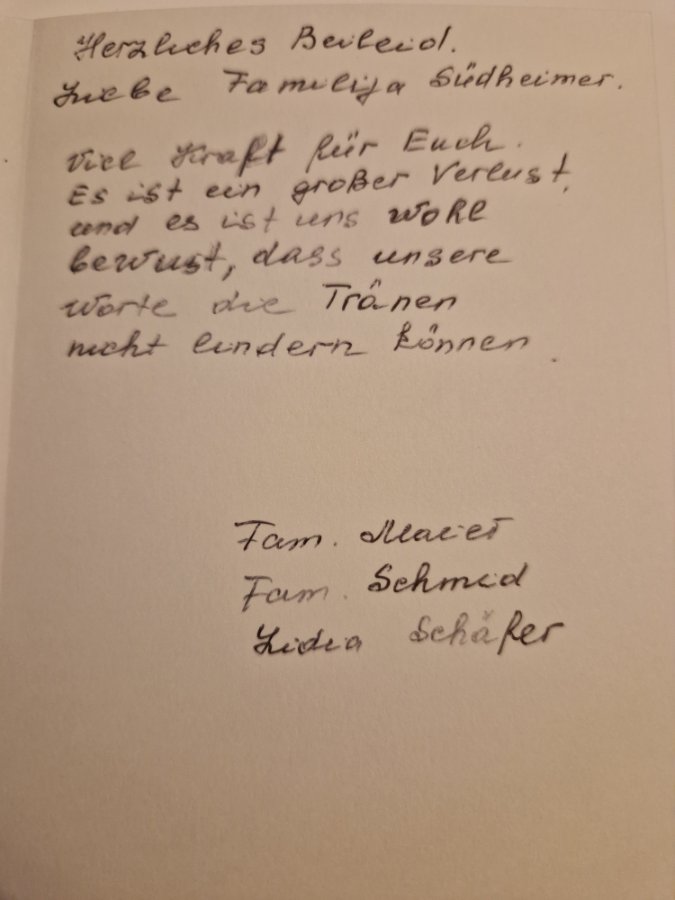 Herzliches Beileid.
Liebe Familija Südheimer.
Viel Kraft für Euch.
Es ist ein großer Verlust,
und es ist uns wohl
bewust, dass unsere
Worte die Tränen
nicht lindern können.
Fam. Maier
Fam. Schmid
Lidia Schäfer